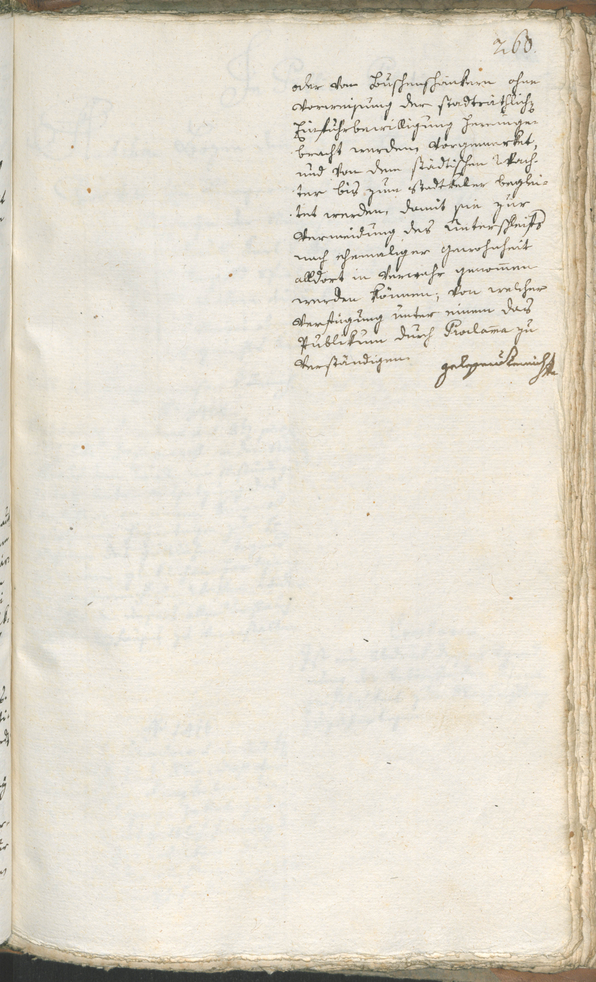 260.
oder von Buschenschänkern ohne
Vorweisung der stadträthlichen
Einfuhrbewilligung hereinge-
bracht werden, vorgemerket,
und von dem städtischen Wach-
ter bis zum Stadtkeller beglei-
tet werden, damit sie zur
Vermeidung des Unterschleifs
nach ehemaliger Gewohnheit
alldort in Verwahr genommen
werden können; von welcher
Verfügung unter einem das
Publikum durch Proclama zu
verständigen